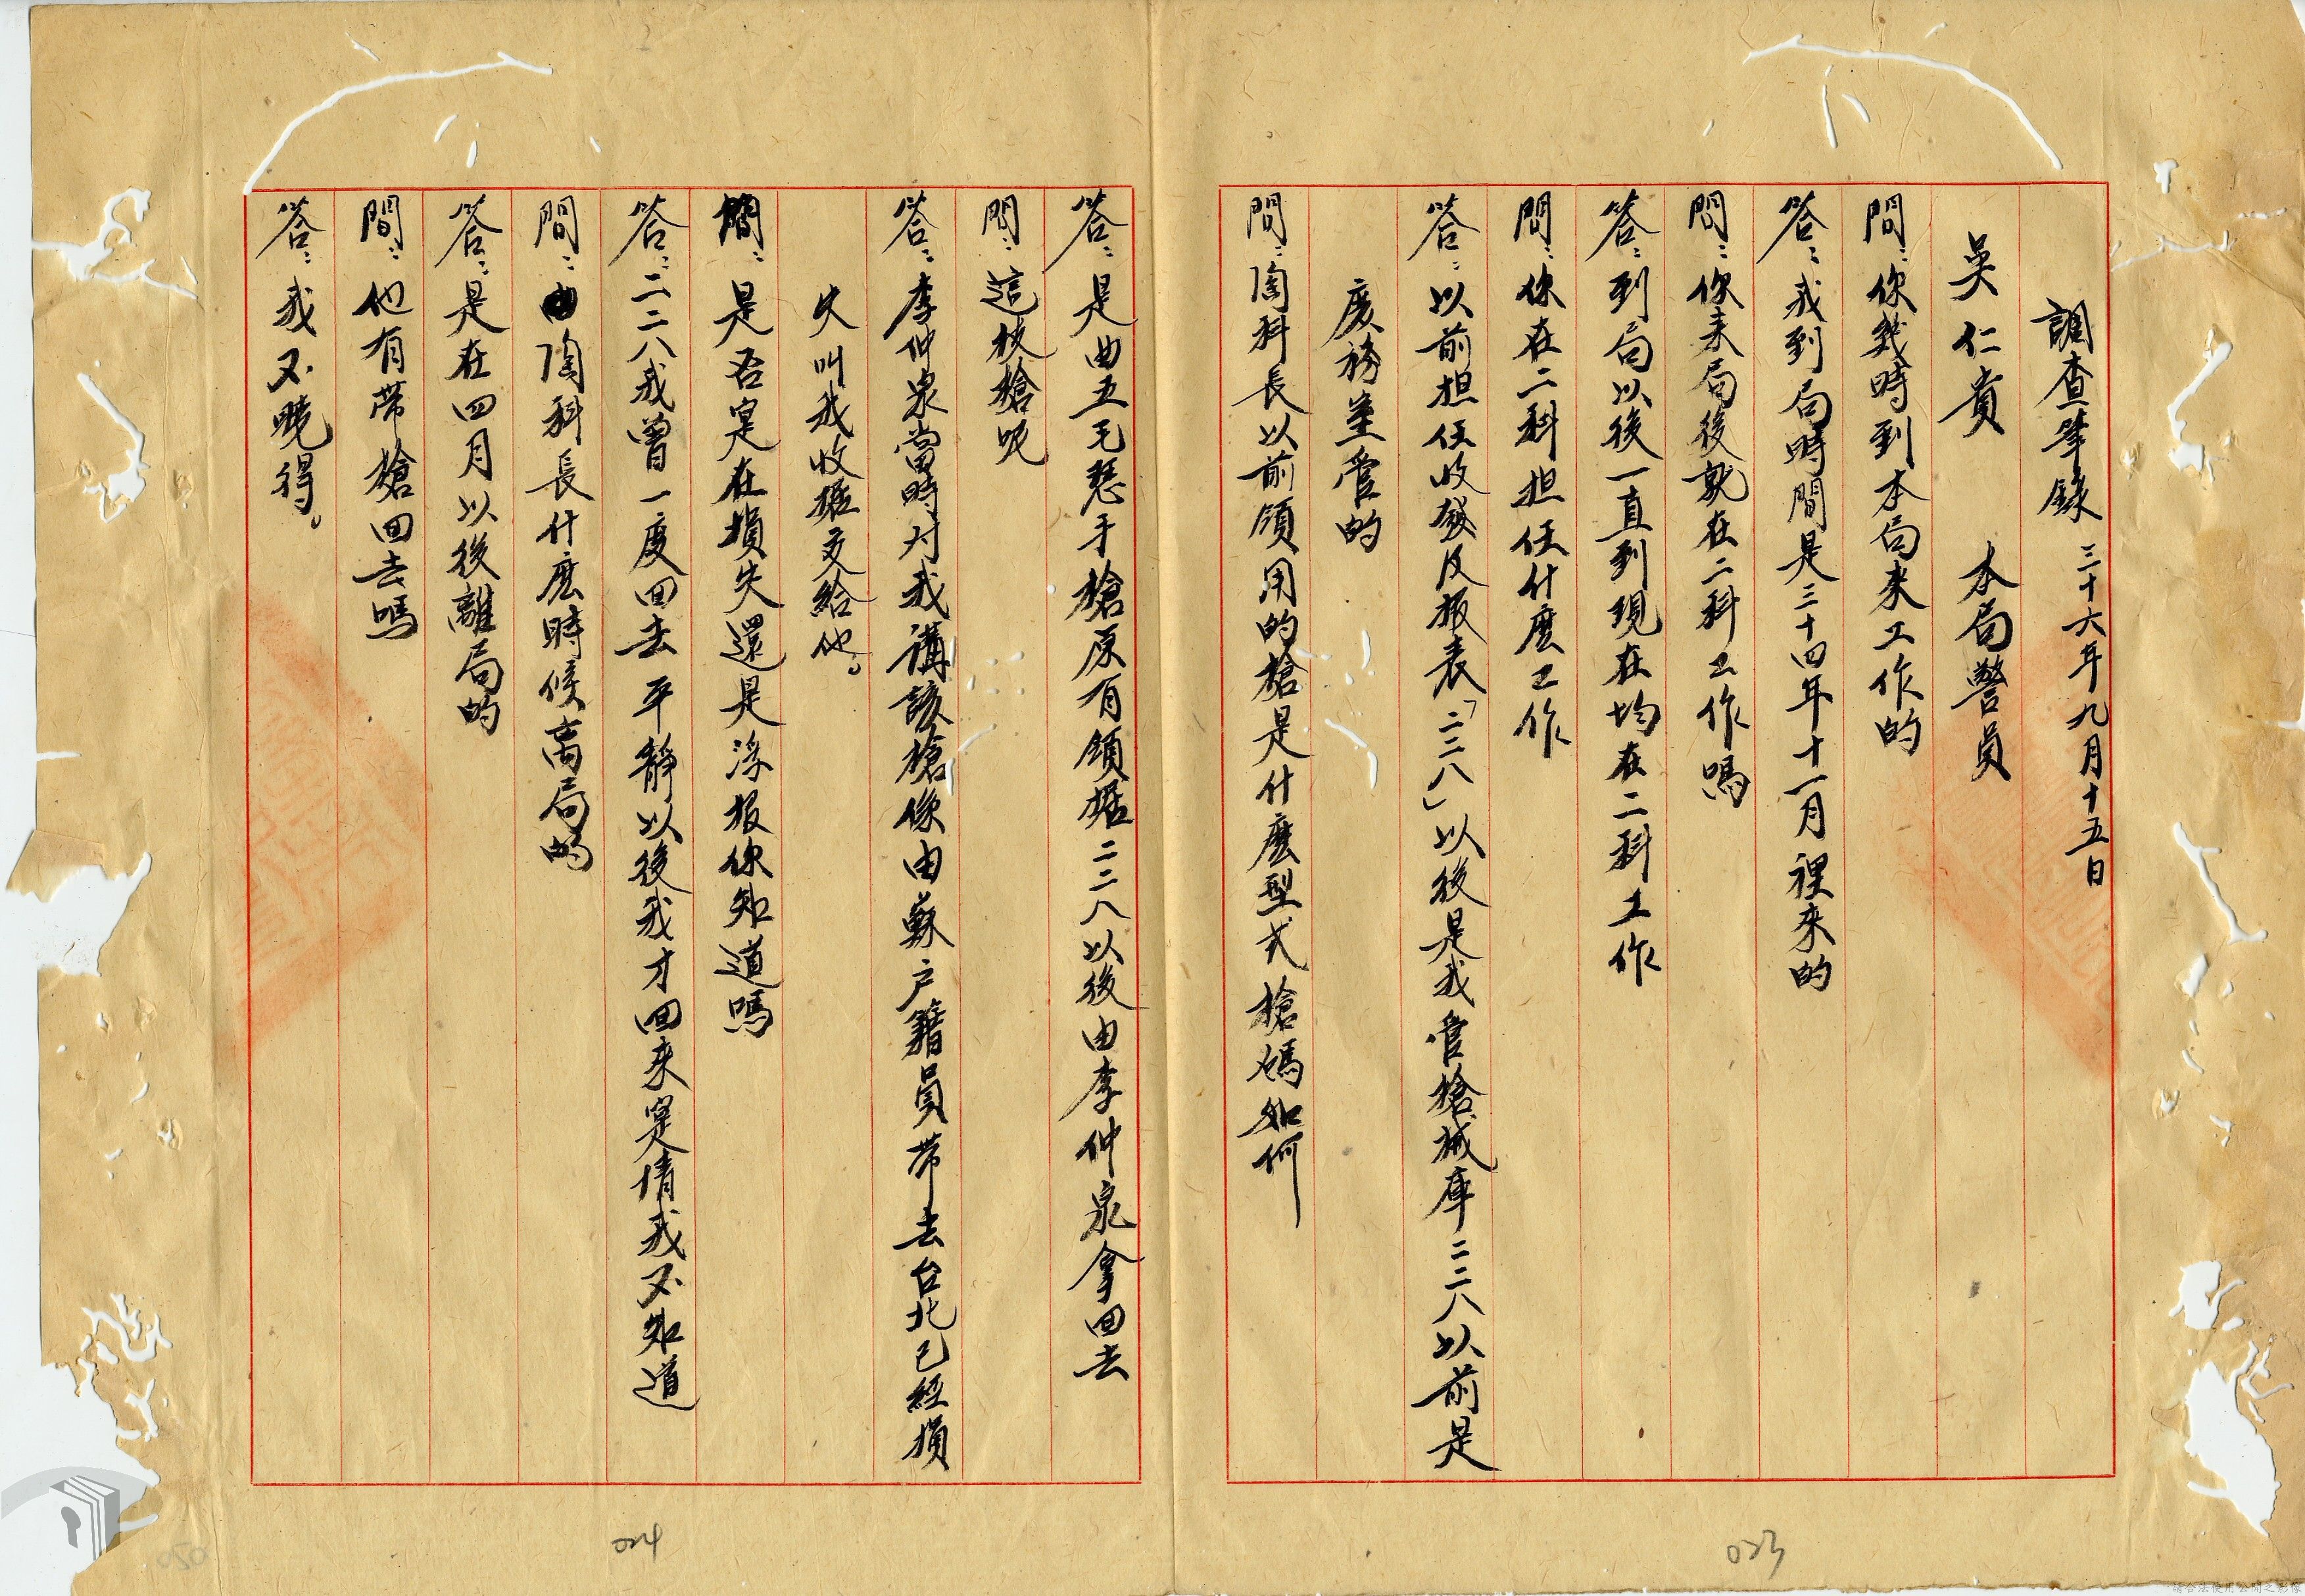 調查筆錄 三十六年九月十五日
吳仁貴 本局警員
問：你幾時到本局來工作的
答：我到局時間是三十四年十一月裡來的
問：你來局後就在二科工作嗎
答：到局以後一直到現在均在二科工作
問：你在二科担任什麼工作
答：以前担任收發及報表「二二八」以後是我管槍械庫二二八以前是
廖務荃管的
問：陶科長以前領用的槍是什麼型式槍碼如何
答：是曲五毛瑟手槍原有領據二二八以後由李仲泉拿回去
問：這枝槍呢
答：李仲泉當時对我講該槍像由蘇户籍員帶去台北已經損
失叫我收據交給他。
問：是否寔在損失還是浮报你知道嗎
答：二二八我曾一度回去平靜以後我才回來寔情我不知道
問：陶科長什麽時候离局的
答：是在四月以後離局的
問：他有帶槍回去嗎
答：我不曉得。
024
023
050
請合法使用公開之影像